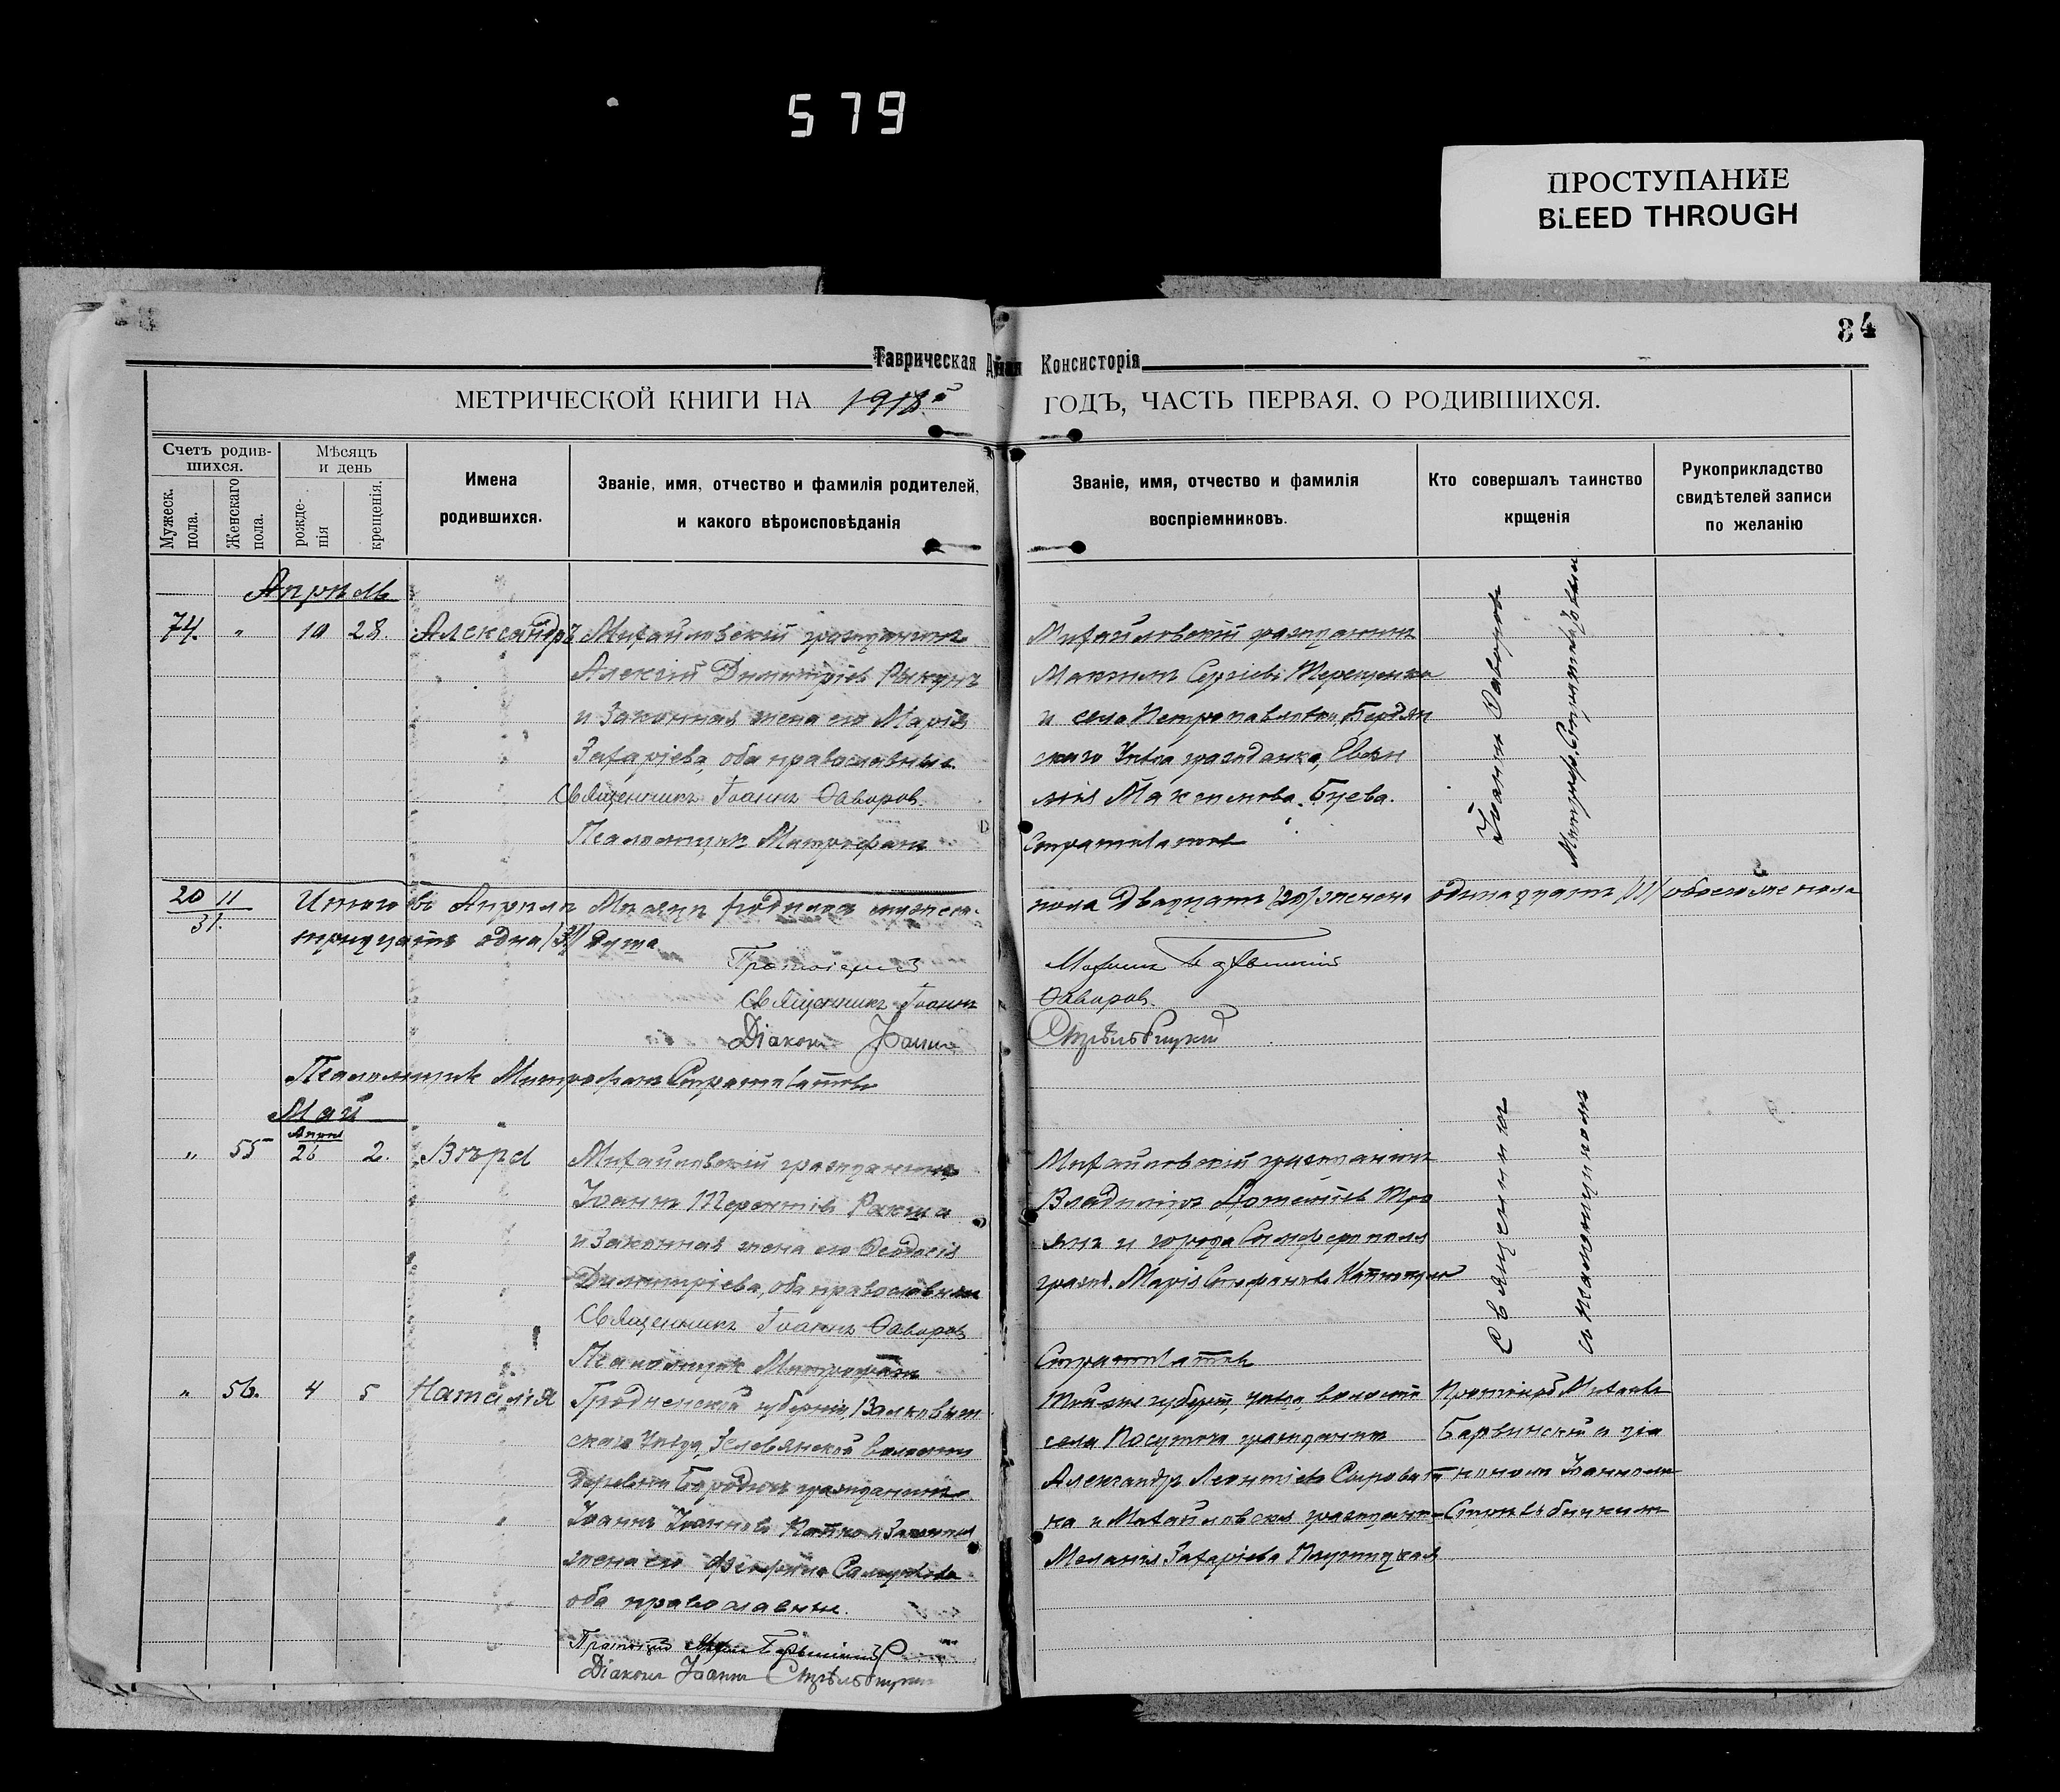 579
ПРОСТУПАНИЕ
BLEED THROUGH
84
Таврическая Консисторія
МЕТРИЧЕСКОЙ КНИГИ НА 1918й ГОДЪ, ЧАСТЬ ПЕРВАЯ, О РОДИВШИХСЯ.
Счетъ родив-
шихся.
Мужеск.
пола.
Женскаго
пола.
Мѣсяцъ
и день
рожде-
нія
крещенія.
Имена
родившихся.
Званіе, имя, отчество и фамилія родителей,
и какого вѣроисповѣданія
Званіе, имя, отчество и фамилія
воспріемниковъ.
Кто совершалъ таинство
крщенія
Рукоприкладство
свидѣтелей записи
по желанію
Апрѣль
74. " 19 28. Александръ
Михайловскій гражданинъ
Алексій Димитріевъ
и законная жена его Марія
Захаріева, оба православные
Священникъ Іоаннъ Ѳаворовъ
Псаломщикъ Митрофанъ Стратилатовъ
Михайловскій гражданинъ
Максимъ Сергіевъ Терещенко
и села Петропавловки, Бердян
скаго Уѣзда гражданка, Евѳи
мія Максимова Буева.
Іоаннъ Ѳаворовъ
20 11
31.
Итого въ Апрѣлѣ Мѣсяцѣ родилось мужеск. пола двадцать (20) женска одинадцать (11) обоего же пола
тридцать одна (31) душа
Протоіерей
Священникъ Іоаннъ Ѳаворовъ
Діаконъ Іоаннъ Стрѣльбицкій
Псаломщикъ Митрофанъ Стратилатовъ
Май
" 55 Апрѣл 26 2. Вѣра
Михайловскій гражданинъ
Іоаннъ Терентіевъ Ракша
и законная жена его Ѳеодосія
Димитріева, оба православные
Священникъ Іоаннъ Ѳаворовъ
Псаломщикъ Митрофанъ Стратилатовъ
Михайловскій гражданинъ
Владиміръ Дометіевъ Тро
янъ и города Симферополя
гражд. Марія Стефанова
Священникъ
съ псаломщикомъ
" 56. 4 5 Наталія
Гродненской губерніи, Волковыс
скаго Уѣзда, волости
деревни гражданинъ
Іоаннъ Іоанновъ и законная
жена его
оба православные.
Протоіерей
Діаконъ Іоаннъ Стрѣльбицкій
Той-же губерніи, уѣзда, волости
села гражданинъ
Александръ Леонтіевъ Сыроват
ка и Михайловская гражданка
Меланія Захаріева
Протоіерей Михаилъ
Барвинскій и діа
кономъ Іоанномъ
Стрѣльбицкимъ